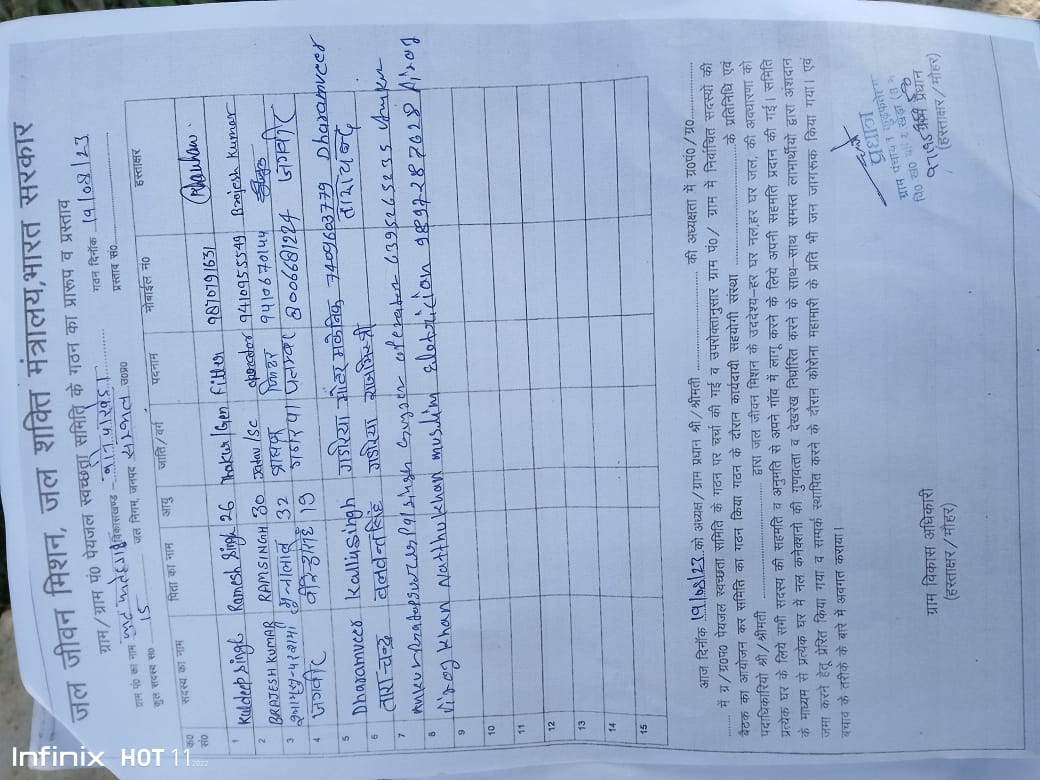 जल जीवन मिशन, जल शक्ति मंत्रालय,भारत सरकार
ग्राम/ग्राम पं० पेयजल स्वच्छता समिति के गठन का प्रारूप व प्रस्ताव
ग्राम पं० का नाम विकासखण्ड गठन दिनॉक 19/08/23
कुल सदस्य सं० 15 जल निगम, जनपद सम्भल उ०प्र० प्रस्ताव सं०
क्र० सं० सदस्य का नाम पिता का नाम आयु जाति/वर्ग पदनाम मोबाईल न० हस्ताक्षर
1 Kuldeep Singh Ramesh Singh 26 Thakur/Gen Fitter 9870791631
2 BRAJESH KUMAR RAMSINGH 30 Jatav/SC operator 9410955549 Brajesh Kumar
3 मुन्नालाल 32 फिटर 9410670144
4 जगवीर 19 8006681224 जगवीर
5 Dharamveer Kallusingh गडरिया मोटर मकेनिक 7409603779 Dharamveer
6 तारा चन्द्र बलवन्त सिंह गडरिया राजमिस्त्री ताराचन्द्र
7 operator 6395265235
8 Firoz Khan Natthu Khan muslim 9897287628 Firoz
9
10
11
12
13
14
15
आज दिनॉक 19/08/23 को अध्यक्ष/ग्राम प्रधान श्री/श्रीमती की अध्यक्षता में ग्र०पं०/ग्र०
में ग्र/ग्र०प० पेयजल स्वच्छता समिति के गठन पर चर्चा की गई व उपरोक्तानुसार ग्राम पं०/ ग्राम में निर्वाचित सदस्यों की
बैठक का आयोजन कर समिति का गठन किया गया गठन के दौरान कार्यदायी सहयोगी संस्था के प्रतिनिधि एवं
पदाधिकारियों श्री/श्रीमती द्वारा जल जीवन मिशन के उददेश्य–हर घर नल,हर घर जल, की अवधारणा को
प्रत्येक घर के लिये सभी सदस्य की सहमति व अनुमति से अपने गॉव में लागू करने के लिये अपनी सहमति प्रदान की गई। समिति
के माध्यम से प्रत्येक घर में नल कनेक्शनों की गुणवत्ता व देखरेख निर्धारित करने के साथ–साथ समस्त लाभार्थीयों द्वारा अंशदान
जमा करने हेतू प्रेरित किया गया व सम्पर्क स्थापित करने के दौरान कोरोना महामारी के प्रति भी जन जागरूक किया गया। एवं
बचाव के तरीके के बारे में अवगत कराया।
प्रधान
ग्राम पंचायत
ग्राम विकास अधिकारी
(हस्ताक्षर/मौहर)
ग्राम प्रधान
(हस्ताक्षर/मौहर)
Infinix HOT 11 2022